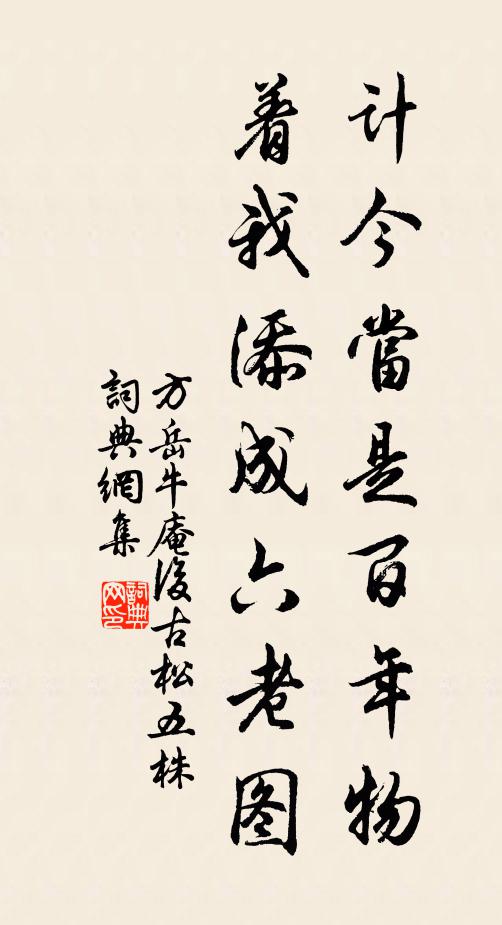 计今當是百年物
着我添成六老图
方岳牛庵後古松五株
詞典網集
詞典网印